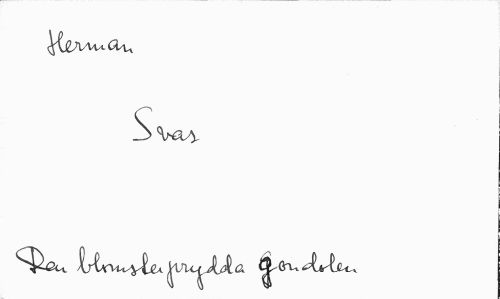 Herman
Svas
Den blomsterprydda gondolen